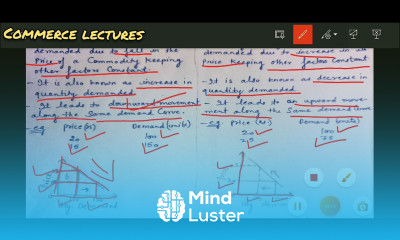 COMMERCE LECTURES
demanded due to fall in the
Price of a Commodity Keeping
other factors Constant.
- It is also known as increase in
quantity demanded
- It leads to downward movement
along the Same demand Curve.
- eg Price (Rs) Demand (units)
20 100
15 150
demanded due to increase in its
Price Keeping other factors Constant
- It is also known as decrease in
quantity demanded
- It leads to an upward move-
ment along the Same demand Curve.
- eg Price (Rs.) Demand (units)
20 100
75
Mind
Luster